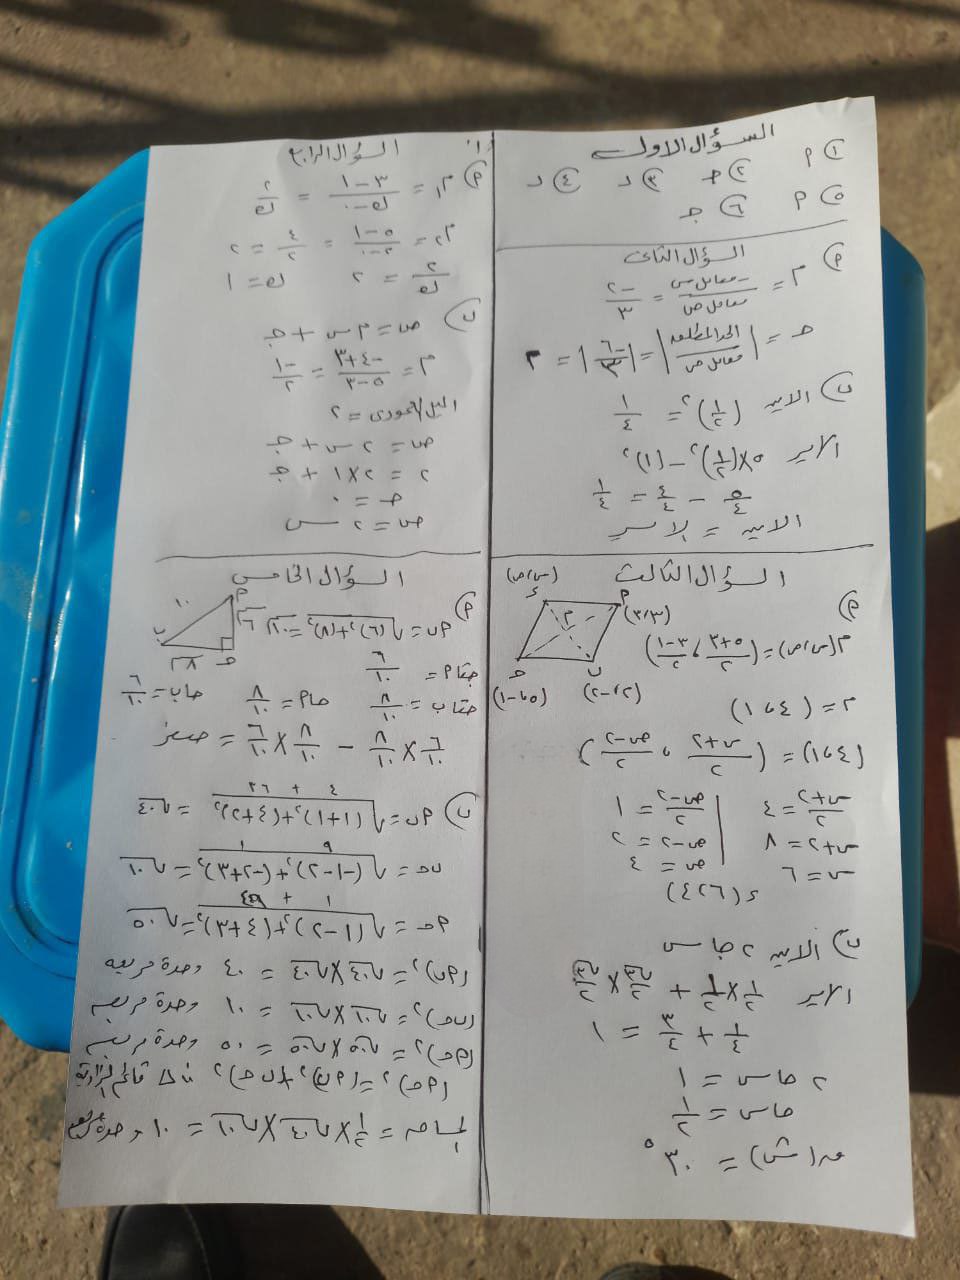 السؤال الاول
① م ② ج ③ د ④ د
⑤ م ⑥ ج
السؤال الثانى
م م = -معامل س / معامل ص = -٢/٣
جـ = |الحد المطلق / معامل ص| = |-٦/٣| = ٢
ب الايمن (١/٢)² = ١/٤
الايسر ٥×(١/٢)² - (١)²
٥/٤ - ٤/٤ = ١/٤
الايمن = الايسر
السؤال الثالث
م
(س،ص) ء م (٣،٣) م جـ ب (٥،-١) (٢،-٢)
م(س،ص) = (٣+٥/٢ ، ٣-١/٢)
م = (٤،١)
(٤،١) = (س+٢/٢ ، ص-٢/٢)
س+٢/٢ = ٤ ص-٢/٢ = ١
س+٢ = ٨ ص-٢ = ٢
س = ٦ ص = ٤
ء(٦،٤)
ب الايمن ٢ جا س
الايسر ١/٢×١/٢ + √٣/٢×√٣/٢
١/٤ + ٣/٤ = ١
٢ جاس = ١
جاس = ١/٢
ق(س) = ٣٠°
السؤال الرابع
م م١ = ٣-١/ك-٠ = ٢/ك
م٢ = ٥-١/٢-٠ = ٤/٢ = ٢
٢/ك = ٢ ك = ١
ب ص = م س + جـ
م = -٤+٣/٥-٣ = -١/٢
الميل العمودى = ٢
ص = ٢ س + جـ
٢ = ٢×١ + جـ
جـ = ٠
ص = ٢ س
السؤال الخامس
م
م ١٠ ٦ ب ٨ جـ
م ب = √(٦)²+(٨)² = ١٠
جتام = ٦/١٠
جتاب = ٨/١٠ جام = ٨/١٠ جاب = ٦/١٠
٦/١٠×٨/١٠ - ٨/١٠×٦/١٠ = صفر
٤ + ٣٦
ب م ب = √(١+١)²+(٤+٢)² = √٤٠
٩ ١
ب جـ = √(-١-٢)²+(-٢+٣)² = √١٠
١ + ٤٩
م جـ = √(١-٢)²+(٤+٣)² = √٥٠
(م ب)² = √٤٠×√٤٠ = ٤٠ وحدة مربعة
(ب جـ)² = √١٠×√١٠ = ١٠ وحدة مربعه
(م جـ)² = √٥٠×√٥٠ = ٥٠ وحدة مربعه
(م جـ)² = (م ب)²+(ب جـ)² ∴ △ قائم الزاوية
المساحه = ١/٢×√٤٠×√١٠ = ١٠ وحدة مربعه